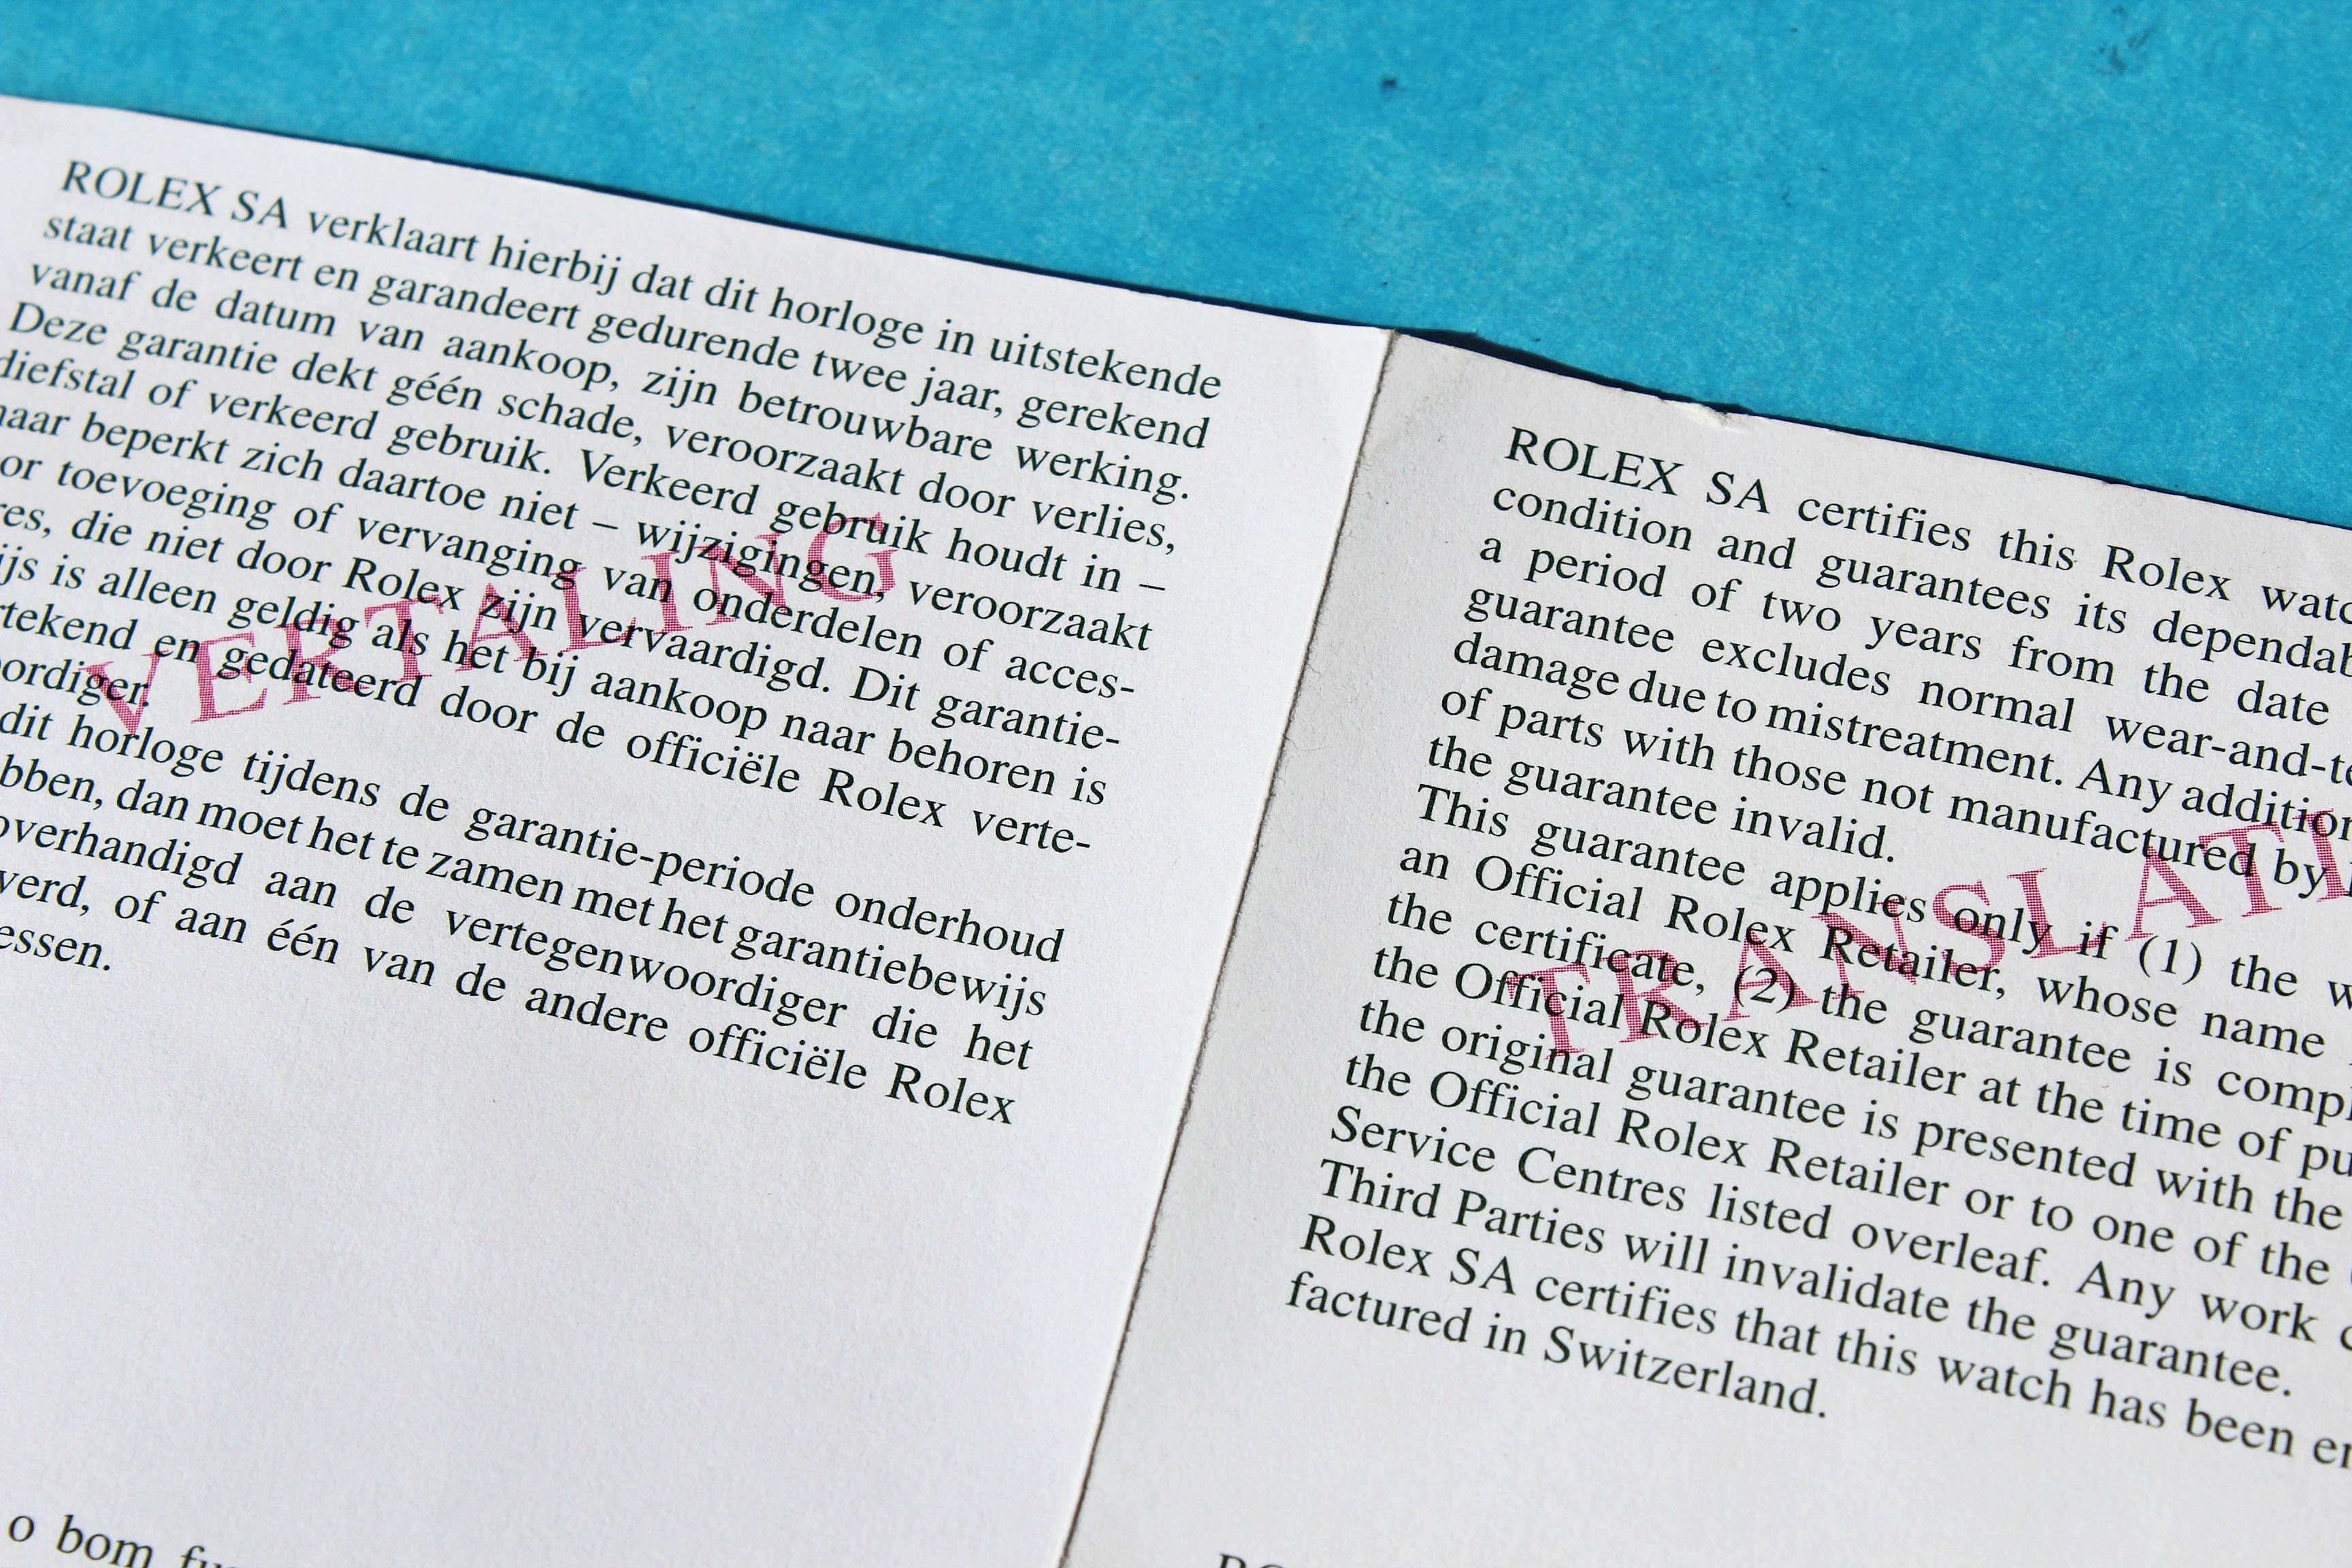 ROLEX SA verklaart hierbij dat dit horloge in uitstekende
staat verkeert en garandeert gedurende twee jaar, gerekend
vanaf de datum van aankoop, zijn betrouwbare werking.
Deze garantie dekt géén schade, veroorzaakt door verlies,
diefstal of verkeerd gebruik. Verkeerd gebruik houdt in –
beperkt zich daartoe niet – wijzigingen, veroorzaakt
toevoeging of vervanging van onderdelen of acces-
die niet door Rolex zijn vervaardigd. Dit garantie-
is alleen geldig als het bij aankoop naar behoren is
en gedateerd door de officiële Rolex verte-
VERTALING
dit horloge tijdens de garantie-periode onderhoud
dan moet het te zamen met het garantiebewijs
overhandigd aan de vertegenwoordiger die het
of aan één van de andere officiële Rolex
o bom
ROLEX SA certifies this Rolex
condition and guarantees its
a period of two years from the date
guarantee excludes normal
damage due to mistreatment. Any
of parts with those not manufactured by
the guarantee invalid.
This guarantee applies only if (1) the
an Official Rolex Retailer, whose name
the certificate, (2) the guarantee is
the Official Rolex Retailer at the time of
the original guarantee is presented with the
the Official Rolex Retailer or to one of the
Service Centres listed overleaf. Any work
Third Parties will invalidate the guarantee.
Rolex SA certifies that this watch has been
factured in Switzerland.